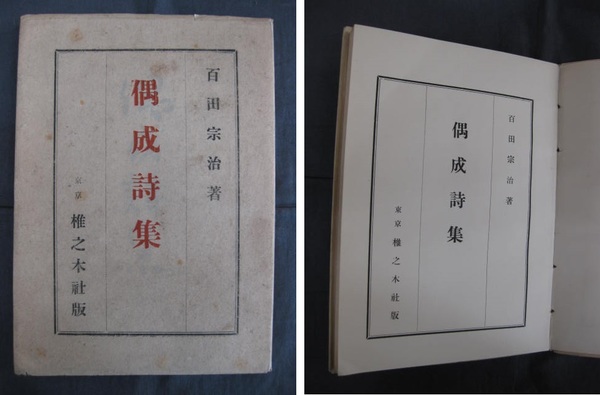 百田宗治著
偶成詩集
東京 椎之木社版
百田宗治著
偶成詩集
東京 椎之木社版